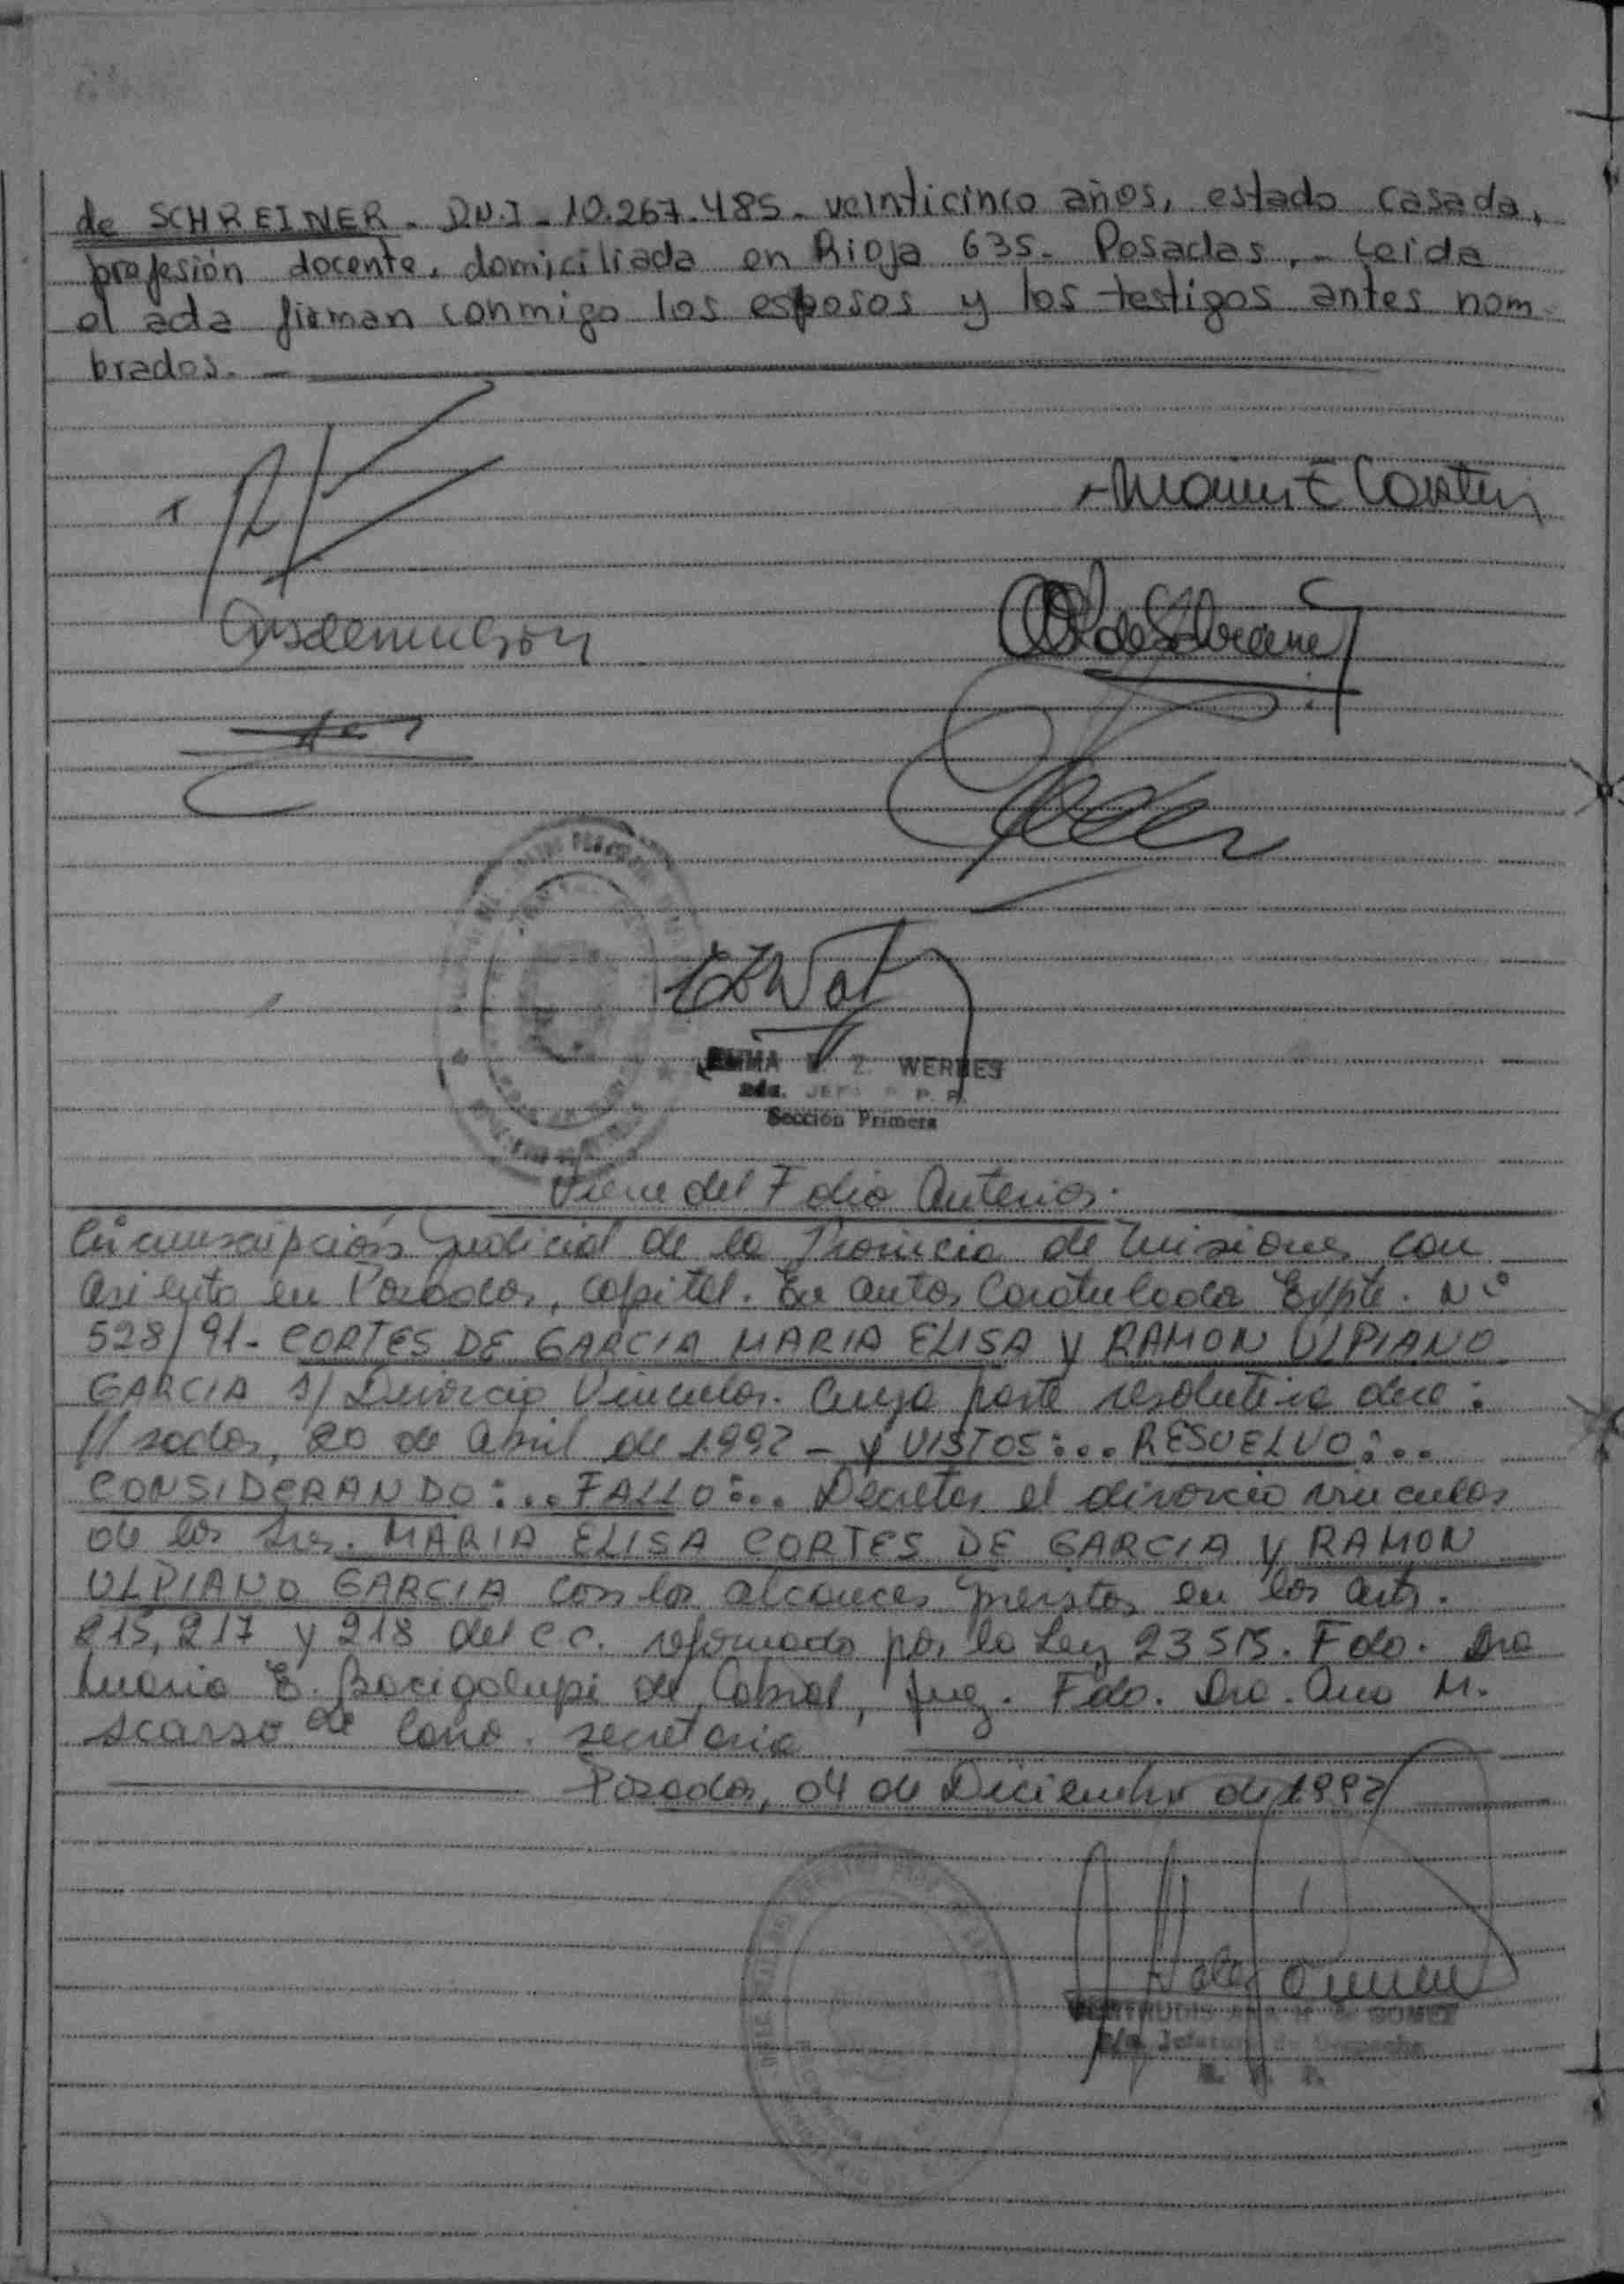 de SCHREINER - D.N.I - 10.267.485 - veinticinco años, estado casada,
profesión docente, domiciliada en Rioja 635 - Posadas, - Leida
el acta firman conmigo los esposos y los testigos antes nom
brados. -
Maria E Cortes
de Schreiner
EMMA Z. WERBES
Sección Primera
Viene del Folio Anterior.
Circunscripción Judicial de la Provincia de Misiones con
asiento en Posadas, capital. En autos Caratulados Expte. Nº
528/91 - CORTES DE GARCIA MARIA ELISA y RAMON ULPIANO
GARCIA s/ Divorcio Vincular. Cuya parte resolutiva dice:
//sadas, 20 de Abril de 1.992 - y VISTOS:... RESUELVO:..
CONSIDERANDO:... FALLO:... Decretar el divorcio vincular
de los Sres. MARIA ELISA CORTES DE GARCIA y RAMON
ULPIANO GARCIA con los alcances previstos en los arts.
215, 217 y 218 del C.C. reformado por la Ley 23515. Fdo. Dra
Maria E. Bacigalupi de Cabral, Juez. Fdo. Dra. Ana M.
Scarso de Cano. secretaria
Posadas, 04 de Diciembre de 1992
GERTRUDIS GOMEZ
Jefatura de Despacho